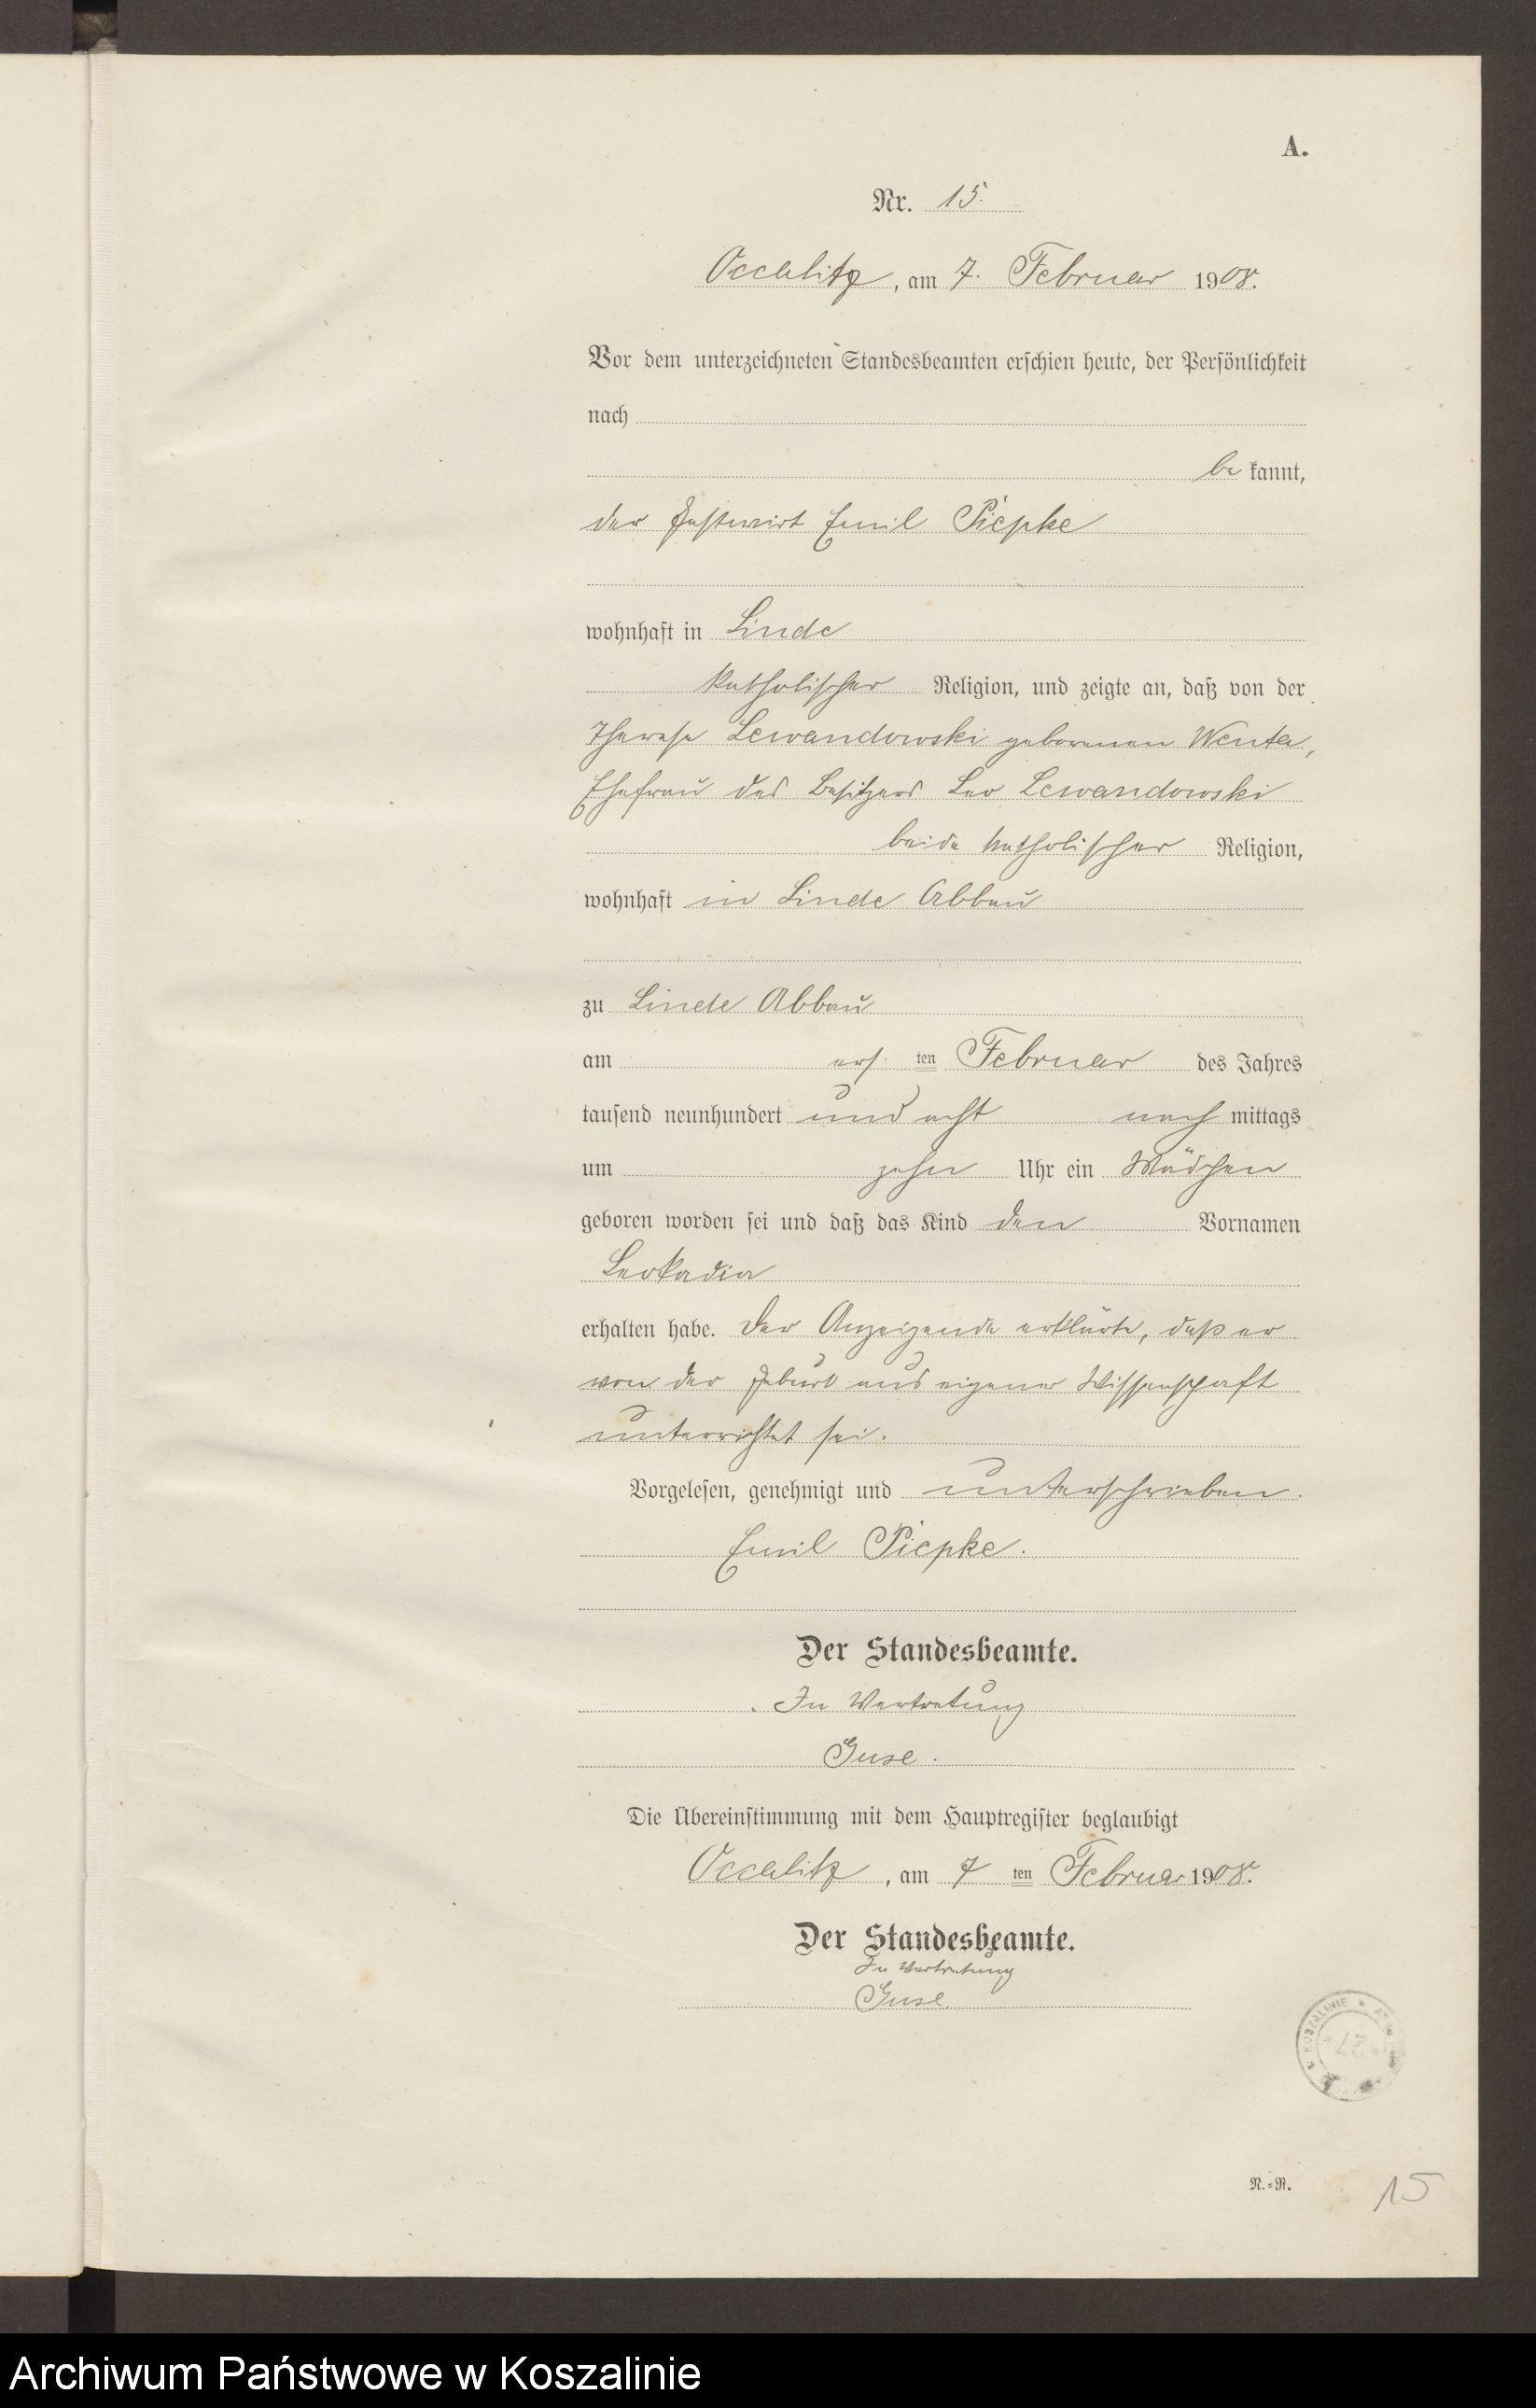 A.
Nr. 15.
Occalitz, am 7. Februar 1908.
Vor dem unterzeichneten Standesbeamten erschien heute, der Persönlichkeit
nach
be kannt,
der Gastwirt Emil Piepke
wohnhaft in Linde
katholischer Religion, und zeigte an, daß von der
Therese Lewandowski geborenen Wenta,
Ehefrau des Besitzers Leo Lewandowski
beide katholischer Religion,
wohnhaft in Linde Abbau
zu Linde Abbau
am ers ten Februar des Jahres
tausend neunhundert und acht nach mittags
um zehn Uhr ein Mädchen
geboren worden sei und daß das Kind den Vornamen
Leokadia
erhalten habe. Der Anzeigende erklärte, daß er
von der Geburt aus eigener Wissenschaft
unterrichtet sei.
Vorgelesen, genehmigt und unterschrieben.
Emil Piepke.
Der Standesbeamte.
In Vertretung
Guse.
Die Übereinstimmung mit dem Hauptregister beglaubigt
Occalitz, am 7 ten Februar 1908.
Der Standesbeamte.
In Vertretung
Guse
KOSZALINIE
27
N.=R.
15
Archiwum Państwowe w Koszalinie